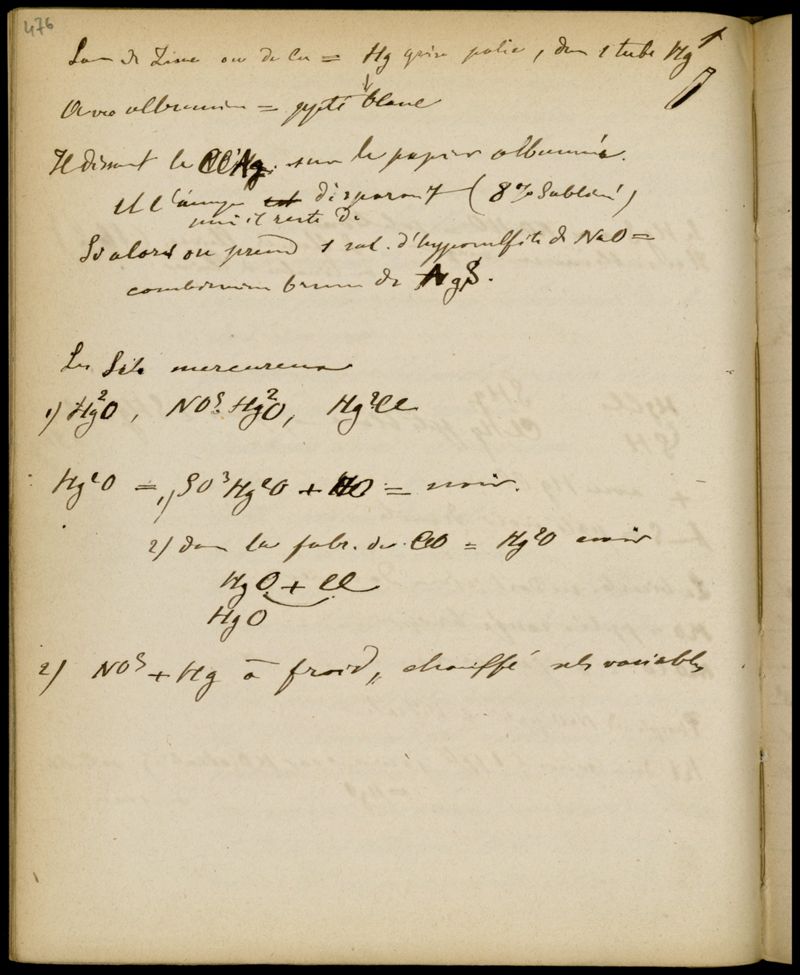 476
Lam de Zinc ou de Cu = Hg grise polie, dans 1 tube Hg
Avec albumine = ppté blanc
Il dissout le ClAg sur le papier albuminé.
et l'image disparait (8% Sublimé)
mais il reste de
Si alors on prend 1 sol. d'hyposulfite de NaO =
combinaison brune de HgS.
Les Sels mercureux
1) Hg²O, NO⁵ Hg²O, Hg²Cl
Hg²O = 1) SO³Hg²O + KO = noir.
2) dans la fabr. de ClO = Hg²O noir
HgO + Cl
HgO
2) NO⁵ + Hg à froid, chauffé sels variables